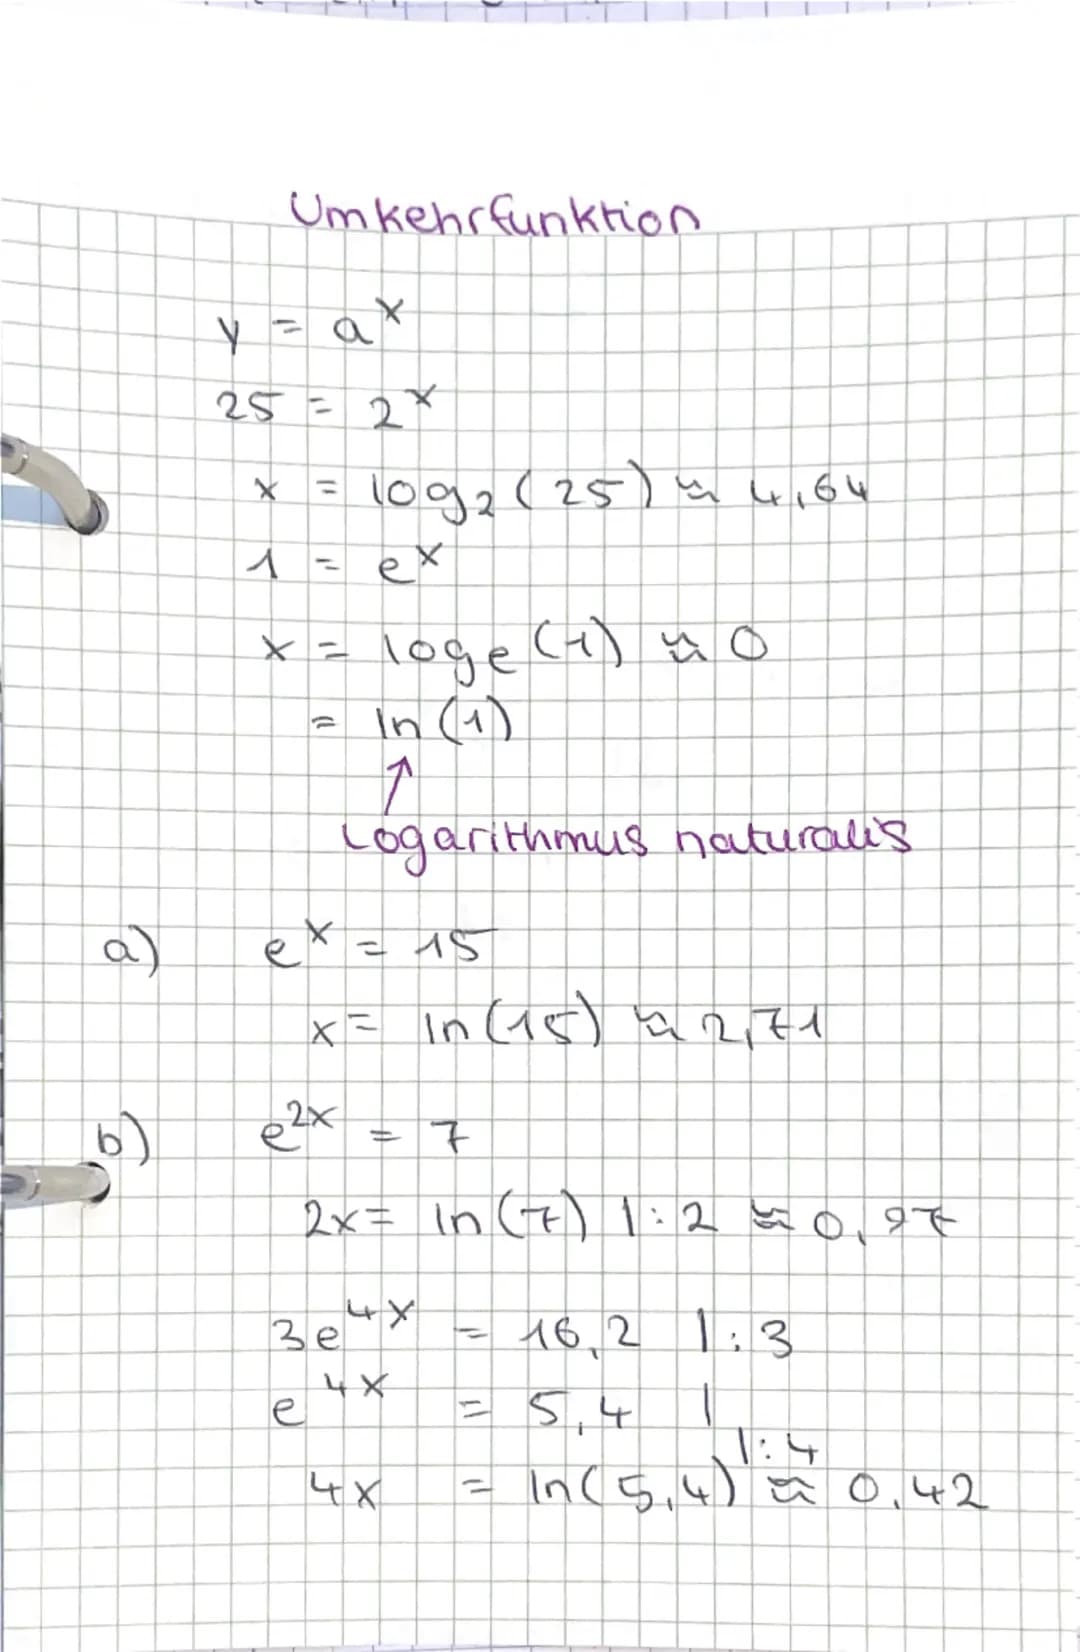 Umkehrfunktion
y = a^x
25 = 2^x
x = log₂(25) ≈ 4,64
1 = e^x
x = loge(1) ≈ 0
= ln(1)
↑
Logarithmus naturalis
a) e^x = 15
x = ln(15) ≈ 2,71
b) e^2x = 7
2x = ln(7) |:2 ≈ 0,97
3e^4x = 16,2 |:3
e^4x = 5,4 |
4x = ln(5,4) |:4 ≈ 0,42